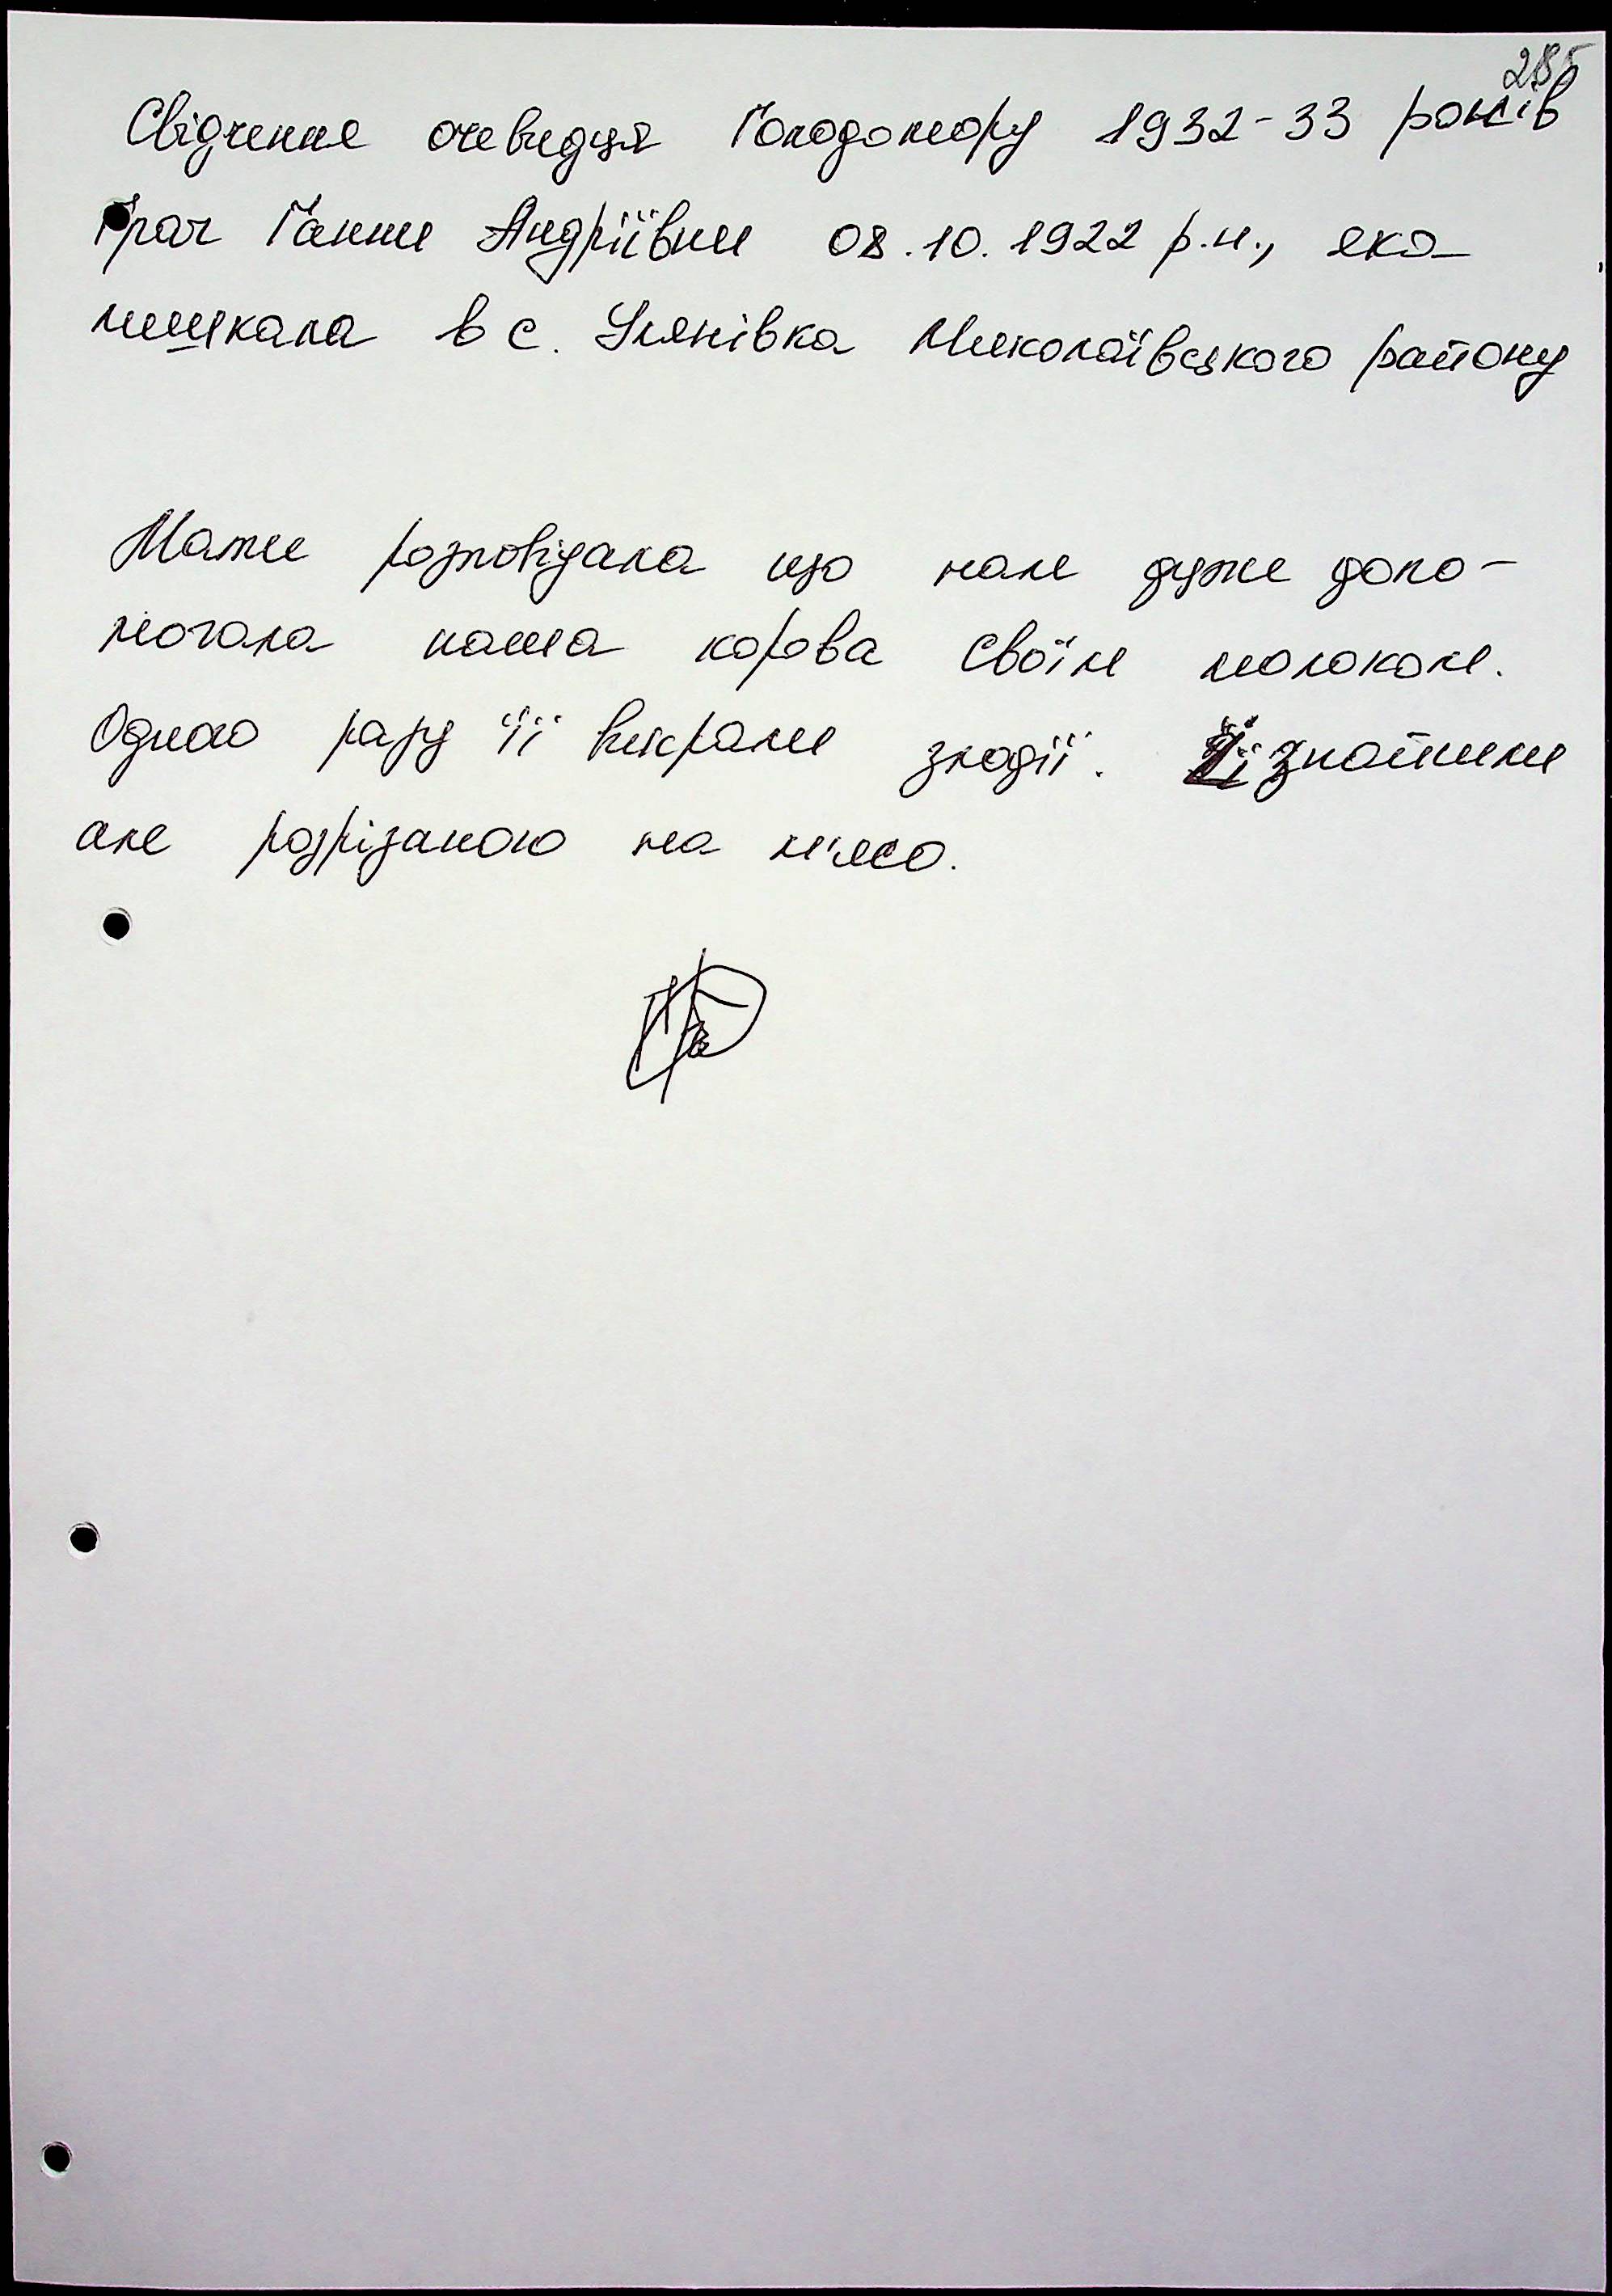 285
Свідчення очевидця Голодомору 1932-33 років
Грач Ганни Андріївни 08.10.1922 р.н., яка
мешкала в с. Улянівка Миколаївського району
Мати розповідала що нам дуже допо-
могала наша корова своїм молоком.
Одного разу її викрали злодії. Її знайшли
але розрізаною на м'ясо.